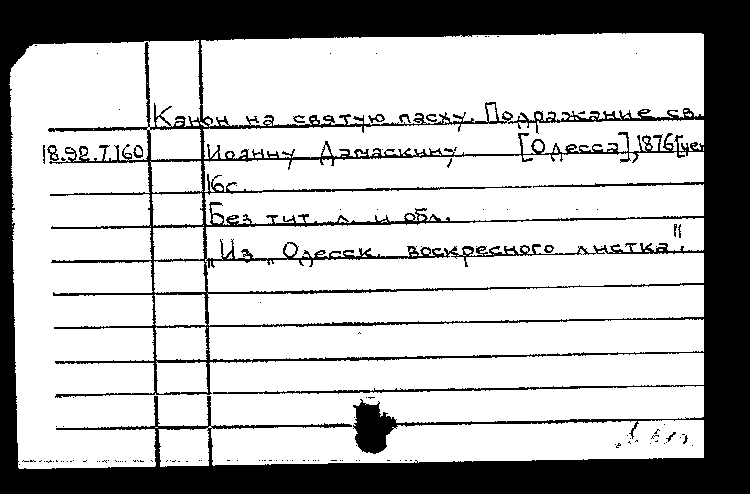 Канон на святую пасху. Подражание св.
18.92.7.160 Иоанну Дамаскину. [Одесса], 1876 [цен
16с.
Без тит. л. и обл.
„Из „Одесск. воскресного листка".